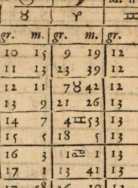 ♉ ♈
gr. m. gr. m. gr.
10 15 9 19 12
11 13 23 39 12
12 11 7 ♉ 42 12
13 9 21 26 13
14 7 4 ♊ 53 13
15 5 18 5 13
16 3 1 ♋ 1 13
17 1 13 41 13